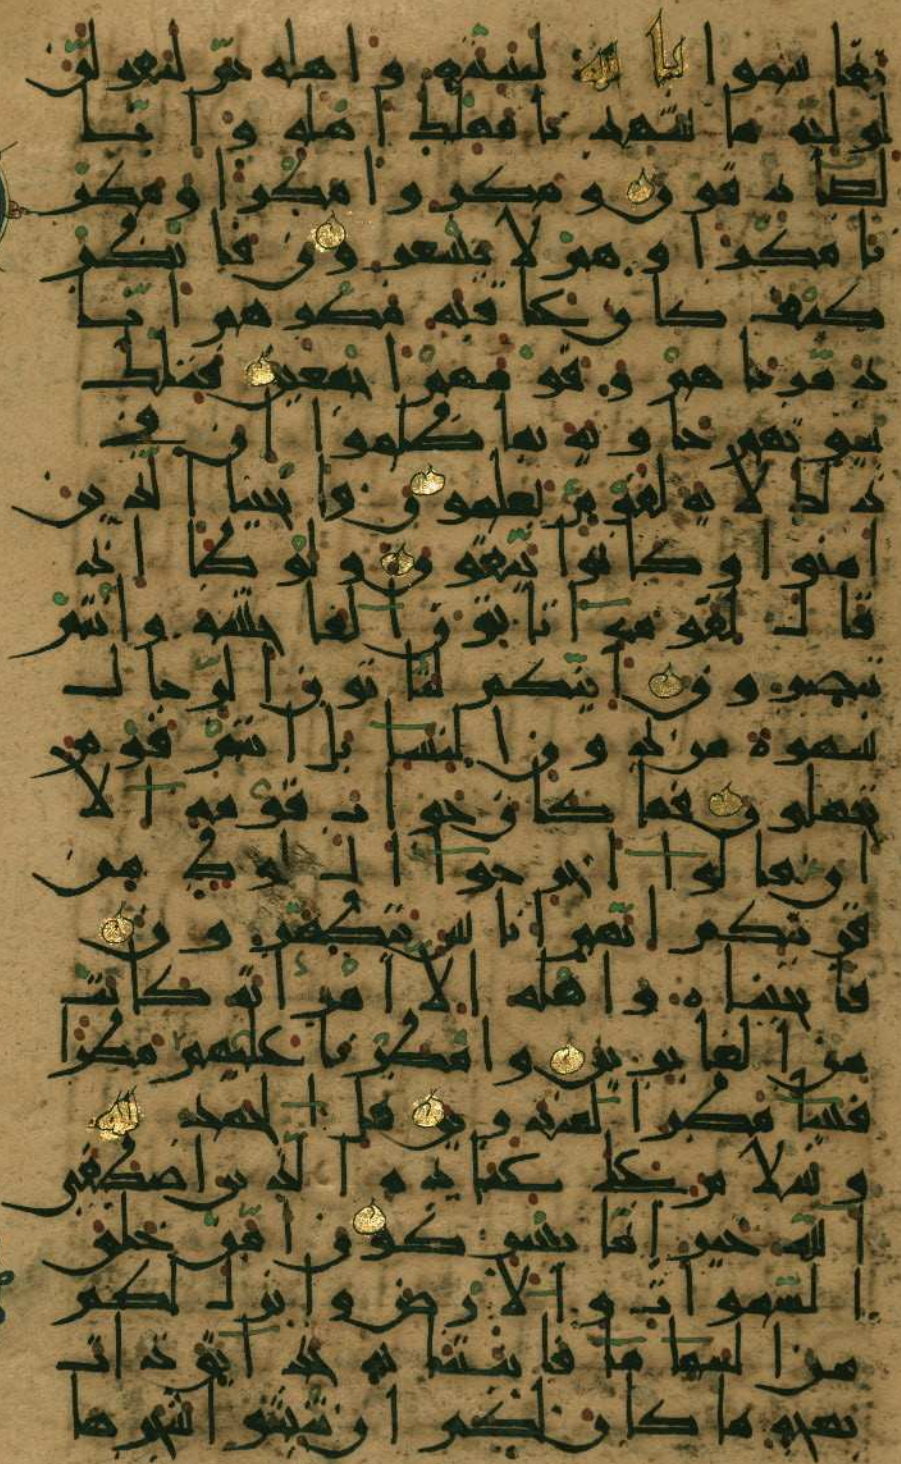 تقاسموا بالله لنبيتنه واهله ثم لنقولن
لوليه ما شهدنا مهلك اهله وانا
لصدقون ومكروا مكرا ومكر
نا مكرا وهم لا يشعرون فانظر
كيف كان عاقبة مكرهم انا
دمرناهم وقومهم اجمعين فتلك
بيوتهم خاوية بما ظلموا ان في
ذلك لاية لقوم يعلمون وانجينا الذين
امنوا وكانوا يتقون ولوطا اذ
قال لقومه اتاتون الفاحشة وانتم
تبصرون ائنكم لتاتون الرجال
شهوة من دون النسا بل انتم قوم
تجهلون فما كان جواب قومه الا
ان قالوا اخرجوا ال لوط من
قريتكم انهم اناس يتطهرون
فانجيناه واهله الا امراته كانت
من الغابرين وامطرنا عليهم مطرا
فسا مطر المنذرين قل الحمد لله
وسلام على عباده الذين اصطفى
الله خير اما يشركون امن خلق
السموات والارض وانزل لكم
من السما ما فانبتنا به حدائق ذات
بهجة ما كان لكم ان تنبتوا شجرها